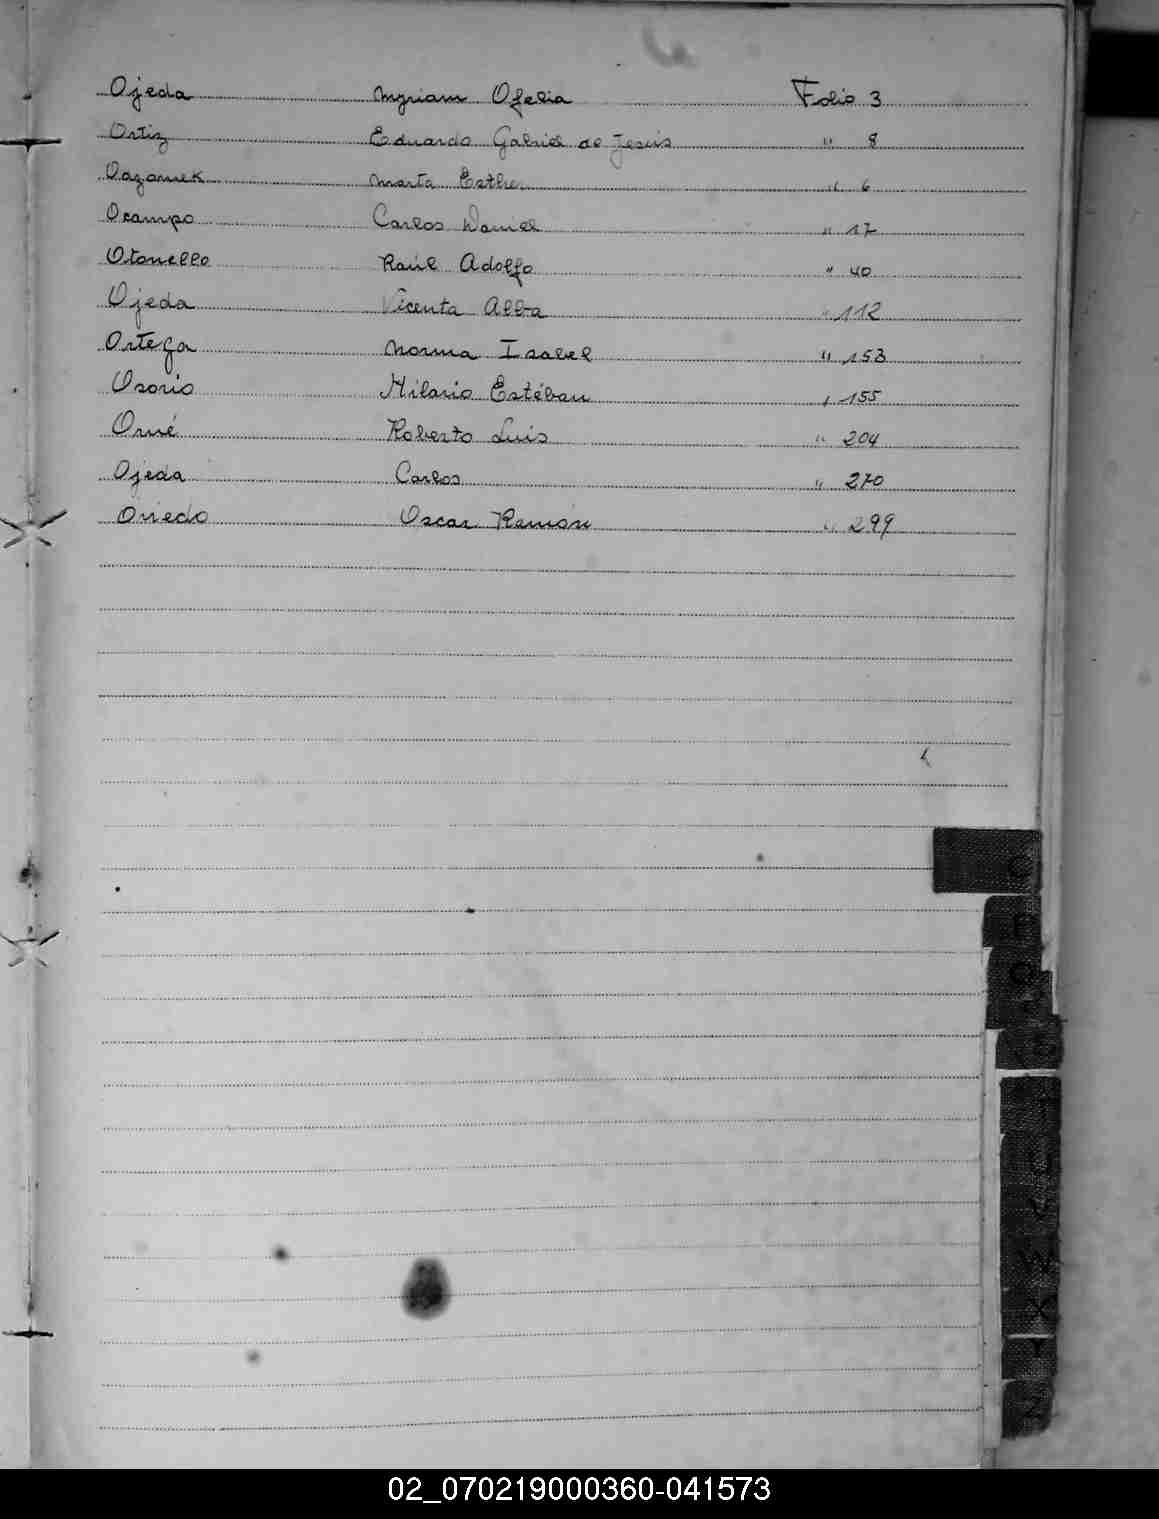 Ojeda Myriam Ofelia Folio 3
Ortiz Eduardo Gabriel de Jesús " 8
Marta Esther " 6
Ocampo Carlos Daniel " 17
Otonello Raúl Adolfo " 40
Ojeda Vicenta Alba " 112
Ortega Norma Isabel " 153
Osorio Hilario Estéban " 155
Orué Roberto Luis " 204
Ojeda Carlos " 270
Oviedo Oscar Ramón " 299
O
P
Q
T
U
V
W
X
Y
Z
02_070219000360-041573